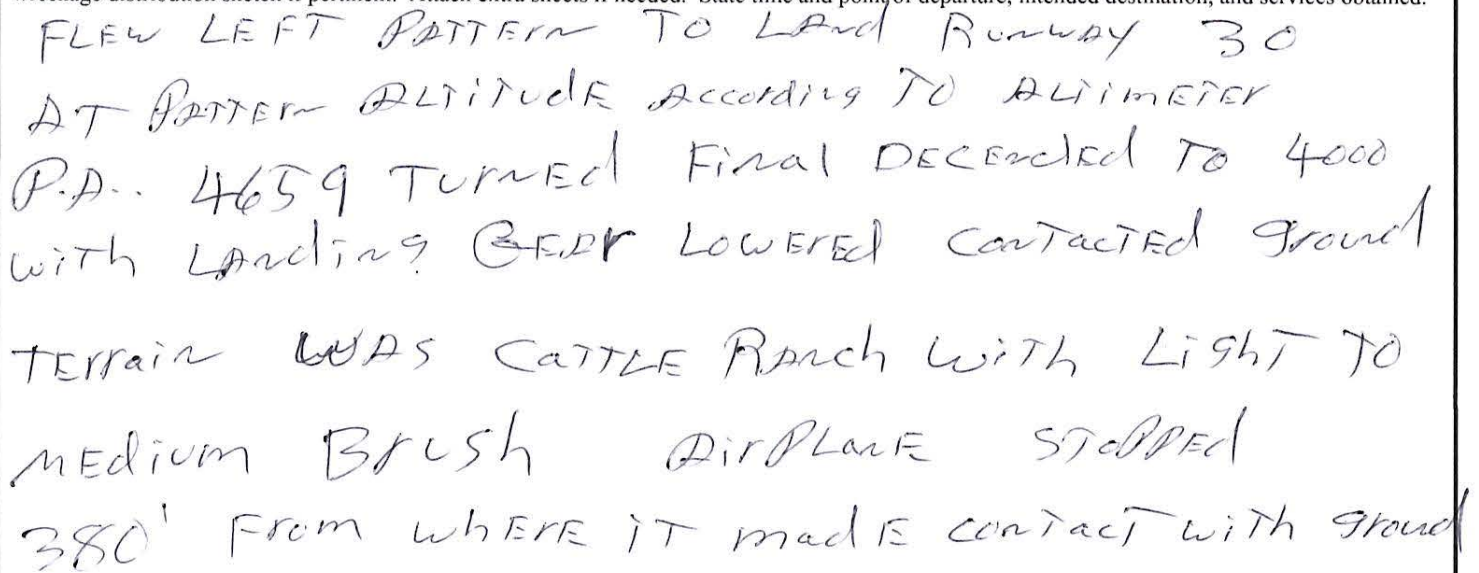 wreckage distribution sketch if pertinent. Attach extra sheets if needed. State time and point of departure, intended destination, and services obtained.
FLEW LEFT PATTErn TO LAnd RunwAY 30
AT PATTErn ALTiTudE According TO ALTimETEr
P.A.. 4659 TurnEd Final DECEndEd To 4000
with LAnding GEAr LowErEd ConTacTEd ground
TErrain WAS CaTTLE RAnch with LighT TO
mEdium Brush AirPLanE SToPPEd
380' From whErE iT madE conTacT with ground